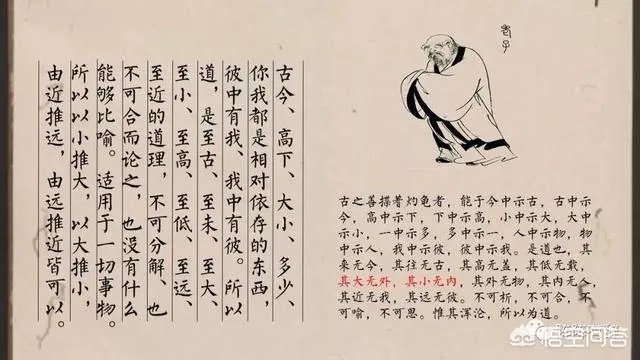 古今、高下、大小、多少、
你我都是相对依存的东西，
彼中有我、我中有彼。所以
道，是至古、至未、至大、
至小、至高、至低、至远、
至近的道理，不可分解、也
不可合而论之，也没有什么
能够比喻。适用于一切事物。
所以以小推大，以大推小，
由近推远，由远推近皆可以。
老子
古之善揲蓍灼龟者，能于今中示古，古中示
今，高中示下，下中示高，小中示大，大中
示小，一中示多，多中示一，人中示物，物
中示人，我中示彼，彼中示我。是道也，其
来无今，其往无古，其高无盖，其低无载，
其大无外，其小无内，其外无物，其内无人，
其近无我，其远无彼。不可折，不可合，不
可喻，不可思。惟其浑沦，所以为道。
悟空问答